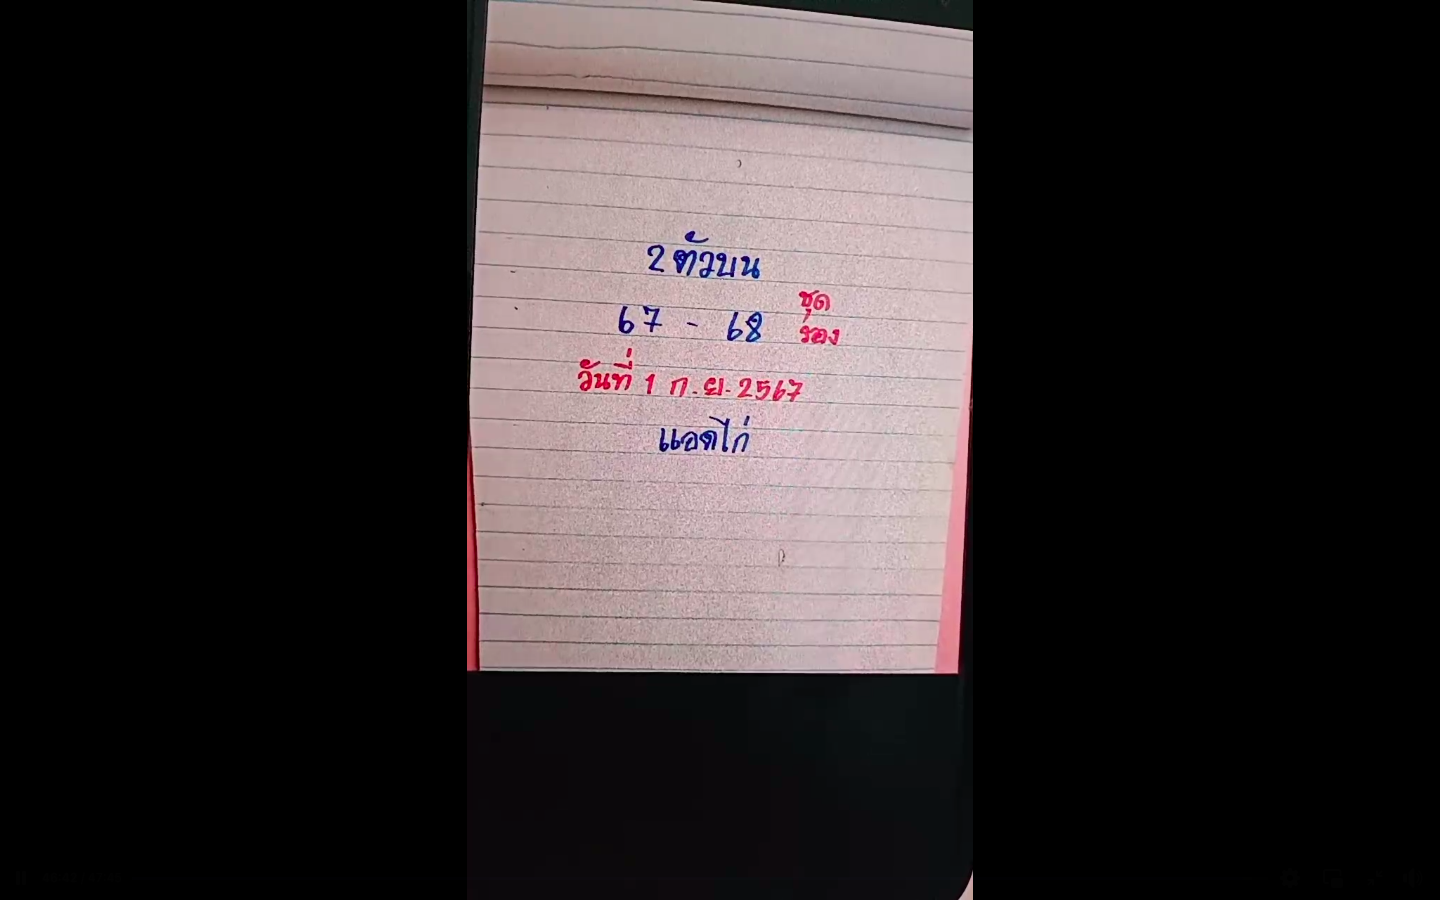 2 ตัวบน
67 - 68 ชุด
รอง
วันที่ 1 ก.ย. 2567
แอดไก่